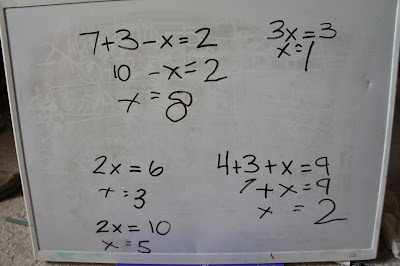 7+3-x=2
10 -x=2
x=8
3x=3
x=1
2x=6
x=3
2x=10
x=5
4+3+x=9
7+x=9
x =2